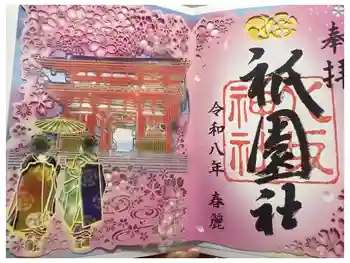 奉拝
祇園社
八坂神社
令和八年 春麗